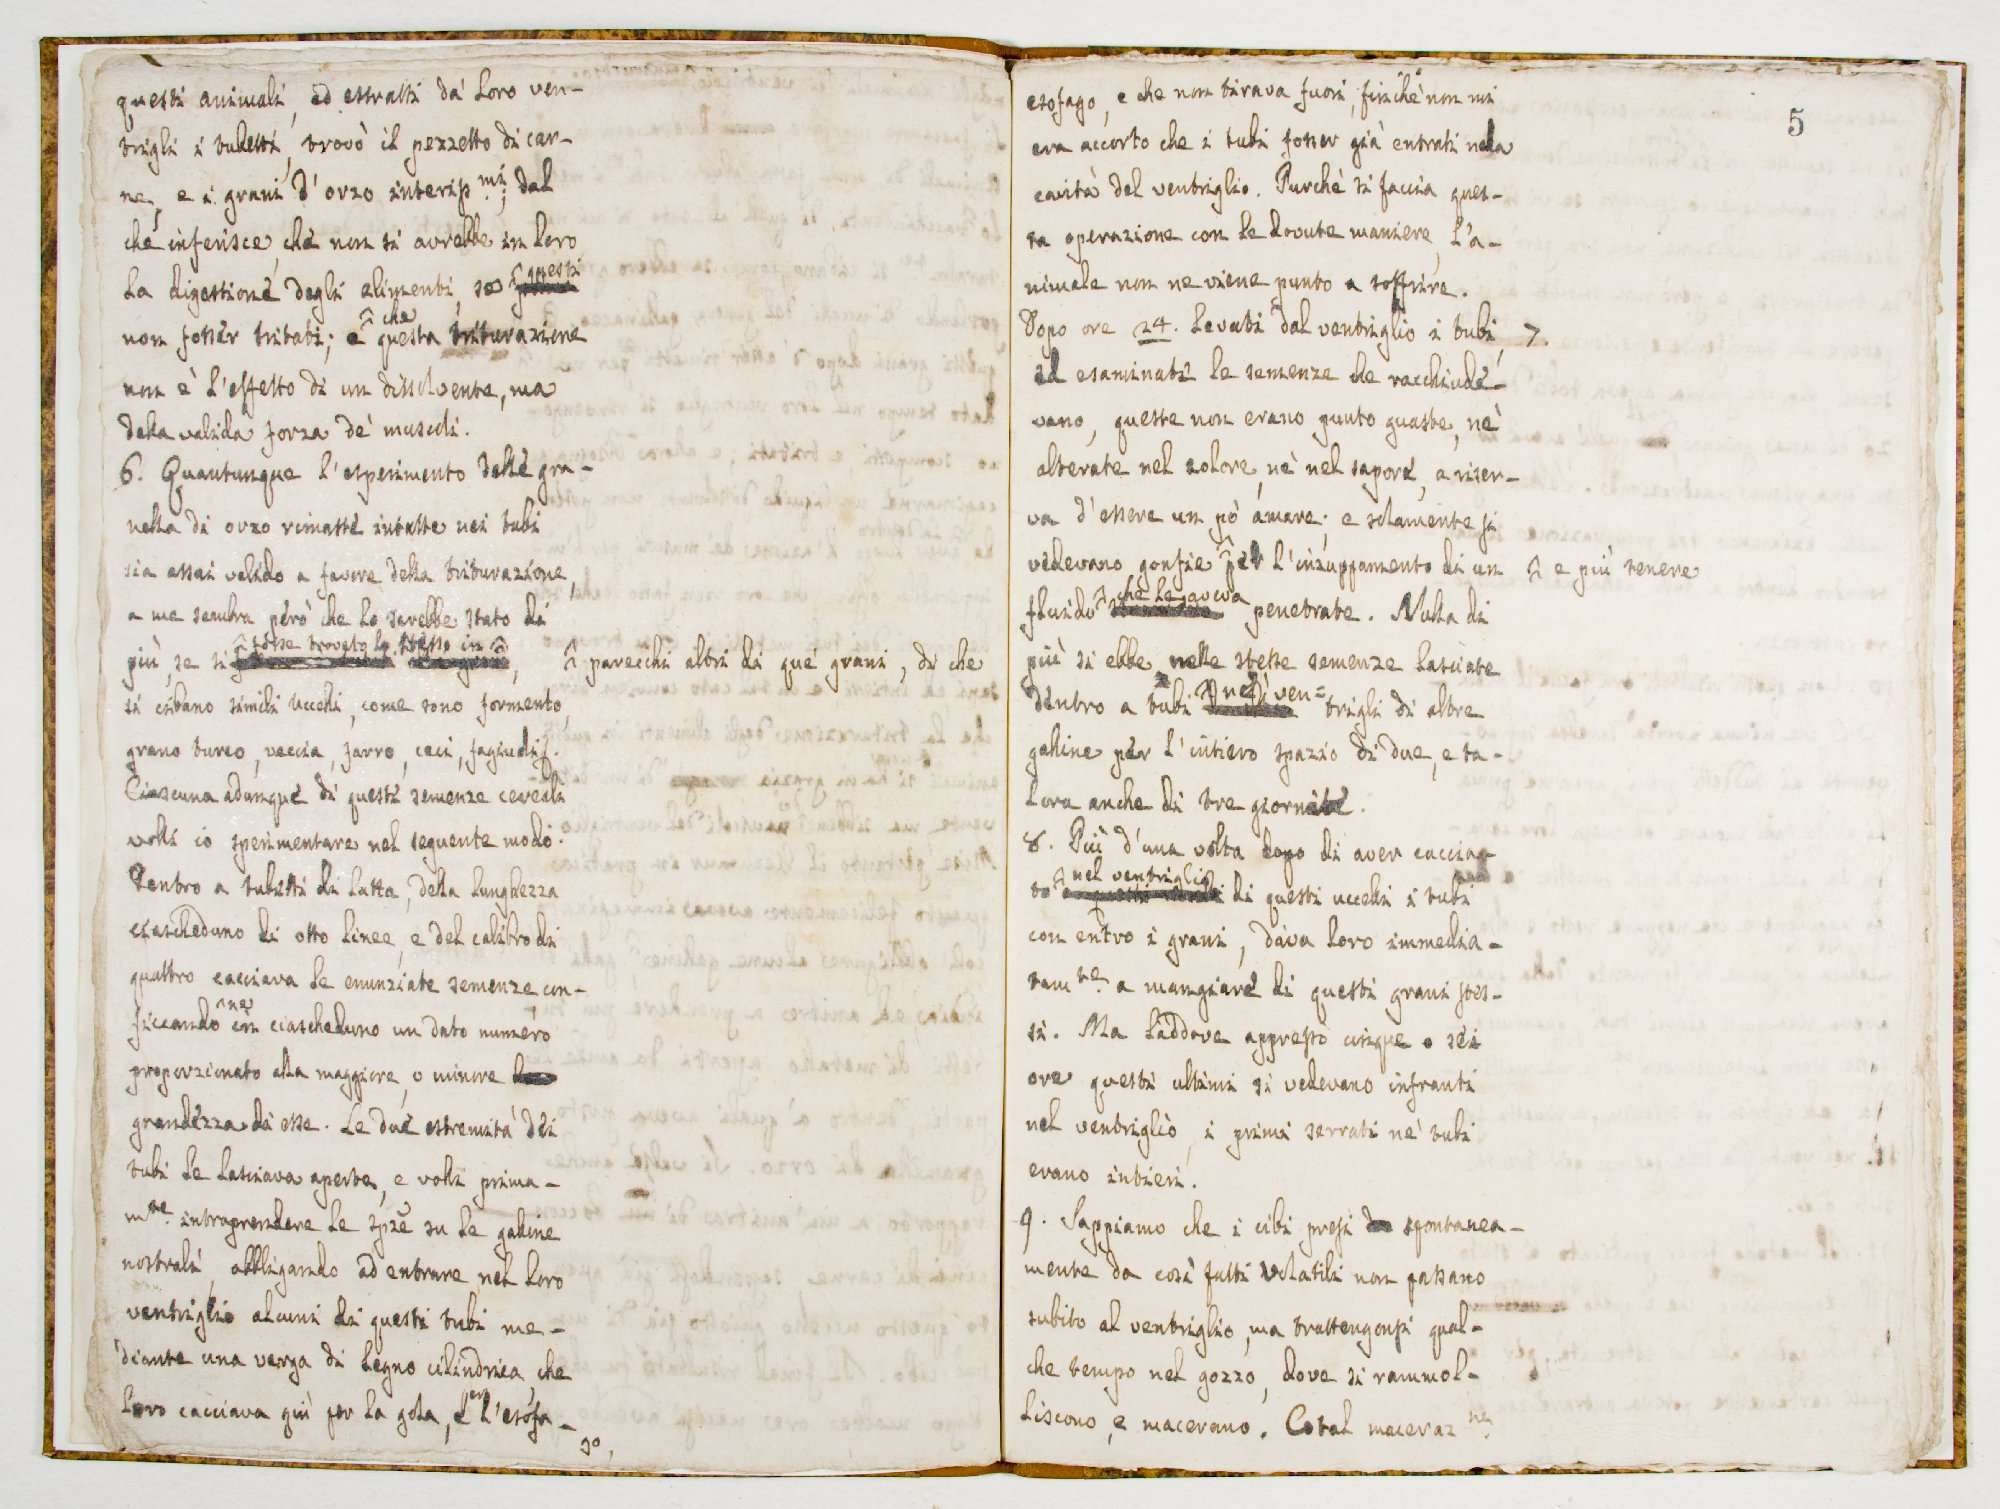 questi animali, ed estratti da' loro ven-
trigli i tubetti, trovò il pezzetto di car-
ne, e i grani d'orzo interiss.mi; dal
che inferisce, che non si avrebbe in loro
la digestione degli alimenti, se ^questi
non fosser tritati; e ^che questa triturazione
non è l'effetto di un dissolvente, ma
della valida forza de' muscoli.
6. Quantunque l'esperimento delle gra-
nella di orzo rimaste intatte nei tubi
sia assai valido a favore della triturazione,
a me sembra però che lo sarebbe stato di
più, se si ^fosse trovato lo stesso in ^, ^ parecchi altri di que' grani, di che
si cibano simili uccelli, come sono formento,
grano turco, veccia, farro, ceci, fagiuoli.
Ciascuna adunque di questi semenze cereali
volli io sperimentare nel seguente modo.
Dentro a tubetti di latta, della lunghezza
ciascheduno di otto linee, e del calibro di
quattro cacciava le enunziate semenze, con-
ficcando ^ne in ciascheduno un dato numero
proporzionato alla maggiore, o minore
grandezza di esse. Le due estremità dei
tubi le lasciava aperte, e volli prima-
m.te intraprendere le spze su le galine
nostrali, obbligando ad entrare nel loro
ventriglio alcuni di questi tubi me-
diante una verga di legno cilindrica che
loro cacciava giù per la gola, e ^er l'esofa-
go,
5
esofago, e che non tirava fuori, finchè non mi
era accorto che i tubi fosser già entrati nela
cavità del ventriglio. Purchè si faccia ques-
ta operazione con le dovute maniere, l'a-
nimale non ne viene punto a soffrire.
Dopo ore 24. levati dal ventriglio i tubi, 7.
ed esaminate le semenze che racchiude-
vano, queste non erano punto guaste, nè
alterate nel colore, nè nel sapore, a riser-
va d'essere un pò amare; e solamente si
vedevano gonfie ^ per l'inzuppamento di un ^ e più tenere
fluido ^che le aveva penetrate. Nulla di
più si ebbe nelle stesse semenze lasciate
dentro a tubi ^nei ven= trigli di altre
galine per l'intiero spazio di due, e ta-
lora anche di tre giornate.
8. Più d'una volta dopo di aver caccia-
to ^nel ventriglio di questi uccelli i tubi
con entro i grani, dava loro immedia-
tam.te a mangiare di questi grani stes-
si. Ma laddove appresso cinque o sei
ore questi ultimi si vedevano infranti
nel ventriglio, i primi serrati ne' tubi
erano intieri.
9. Sappiamo che i cibi presi spontanea-
mente da così fatti volatili non passano
subito al ventriglio, ma trattengonsi qual-
che tempo nel gozzo, dove si rammol-
liscono, e macerano. Cotal maceraz.ne